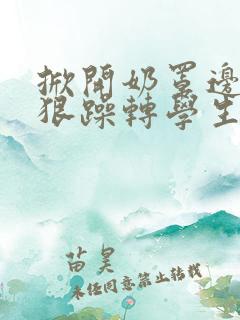 掀開奶罩邊
狠躁轉學生
苗昊
未經同意禁止轉載